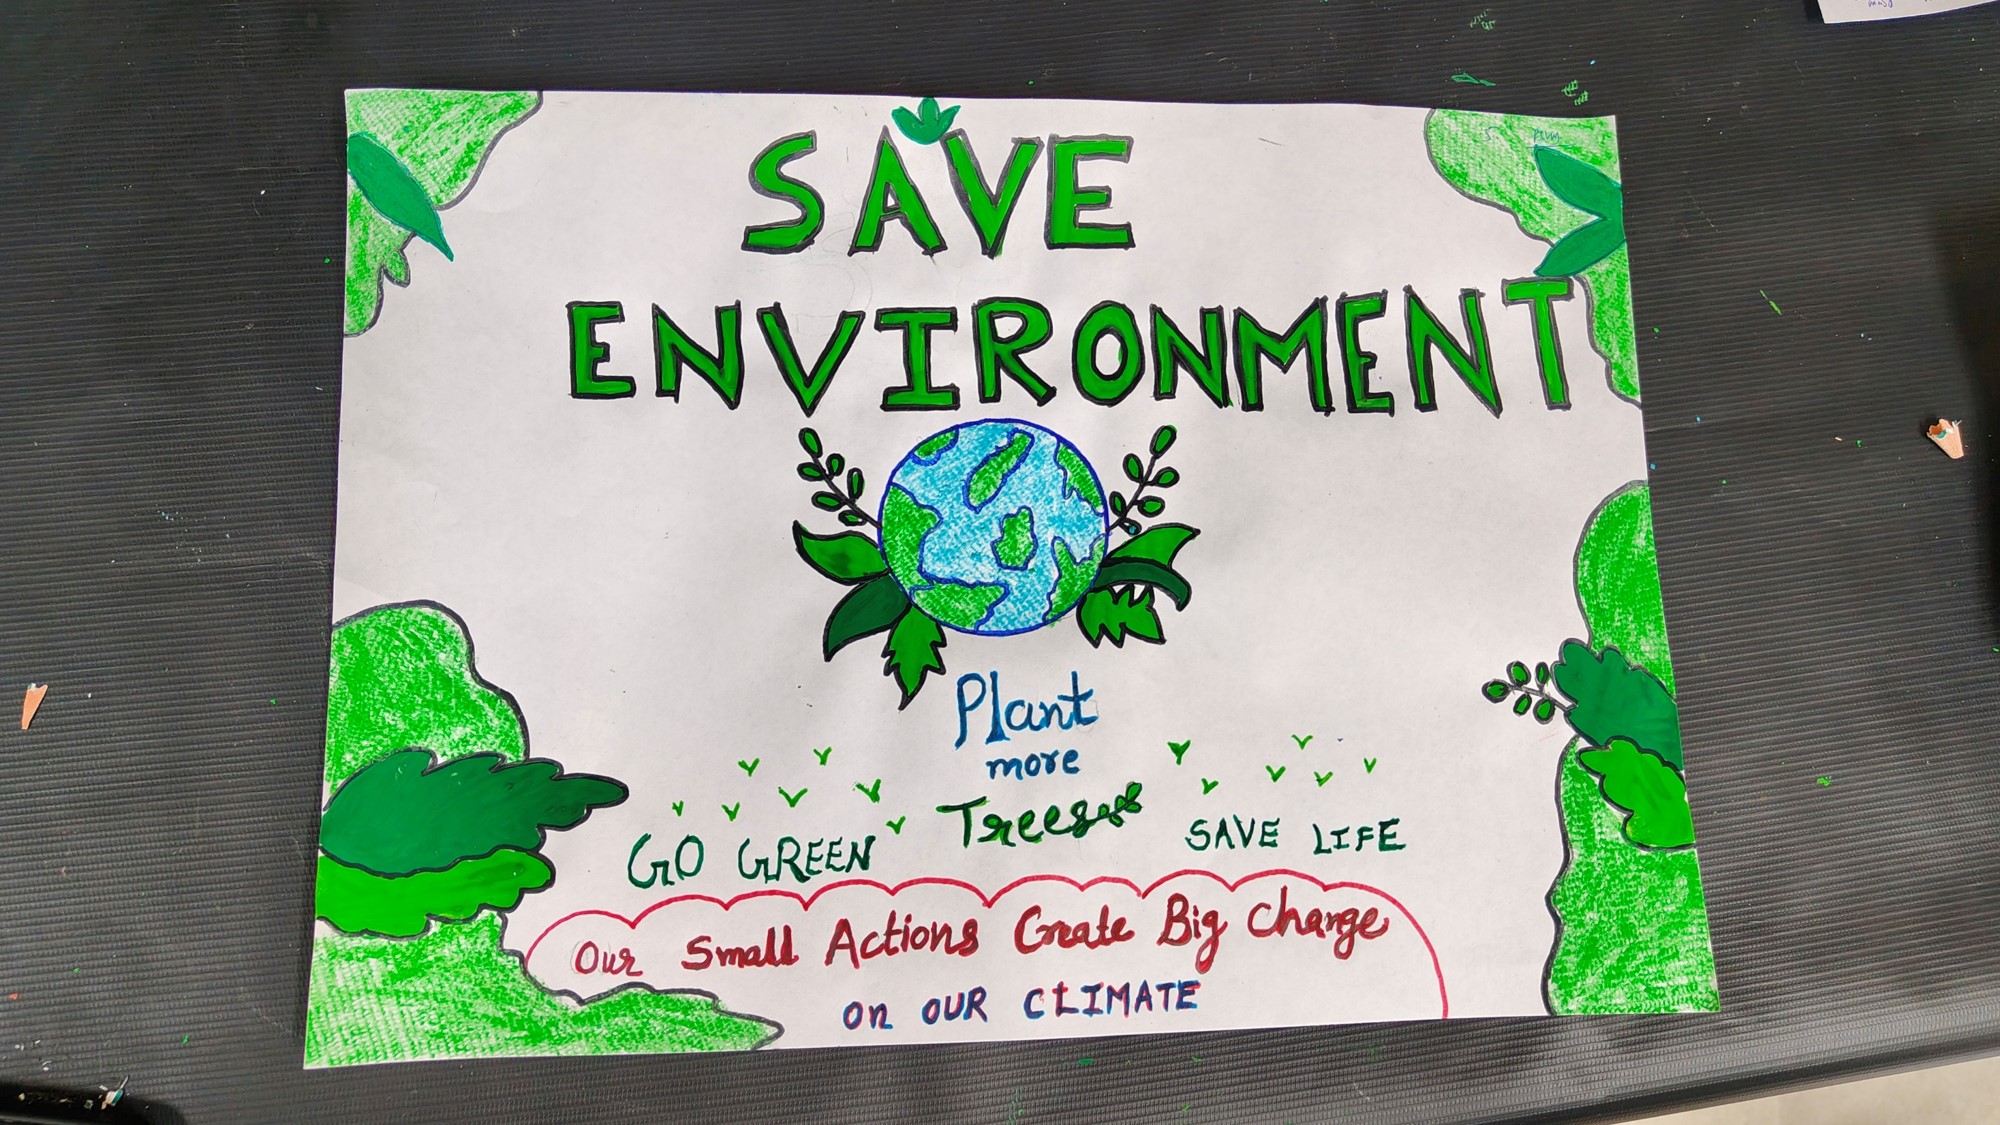 SAVE
ENVIRONMENT
Plant
more
Trees
GO GREEN
SAVE LIFE
Our Small Actions Create Big Change
On OUR CLIMATE